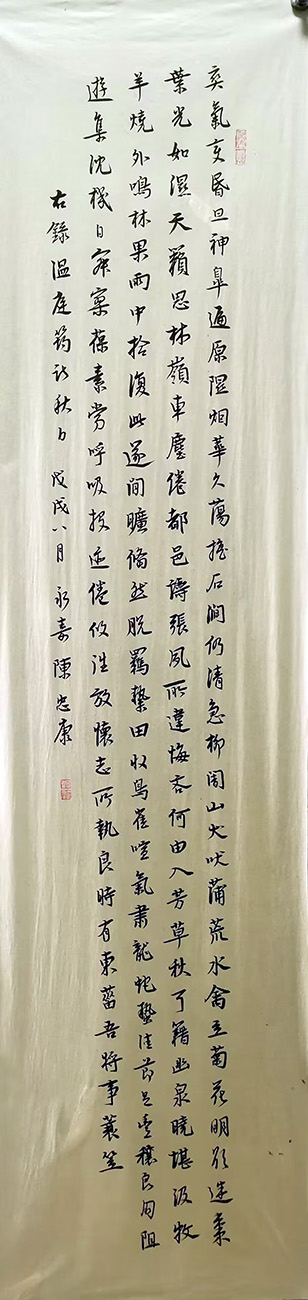 爽氣變昏旦神皋遍原隰烟華久蕩搖石澗仍清急柳闇山犬吠蒲荒水禽立菊花明欲迷棗
葉光如濕天籟思林嶺車塵倦都邑譸張夙所違悔吝何由入芳草秋可藉幽泉曉堪汲牧
羊燒外鳴林果雨中拾復此遂閒曠翛然脫羈縶田收鳥雀喧氣肅龍蛇蟄佳節足豐穰良朋阻
遊集沈機日寂寞葆素常呼吸投迹倦攸往放懷志所執良時有東菑吾將事蓑笠
右錄溫庭筠詩秋日 戊戌八月 永壽陳忠康